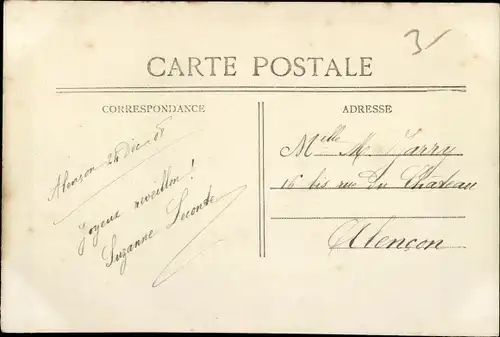 3
CARTE POSTALE
CORRESPONDANCE
Alençon 24 Dec 08
Joyeux réveillon!
Suzanne Leconte
ADRESSE
Melle M. Jarry
16 bis rue du Château
Alençon